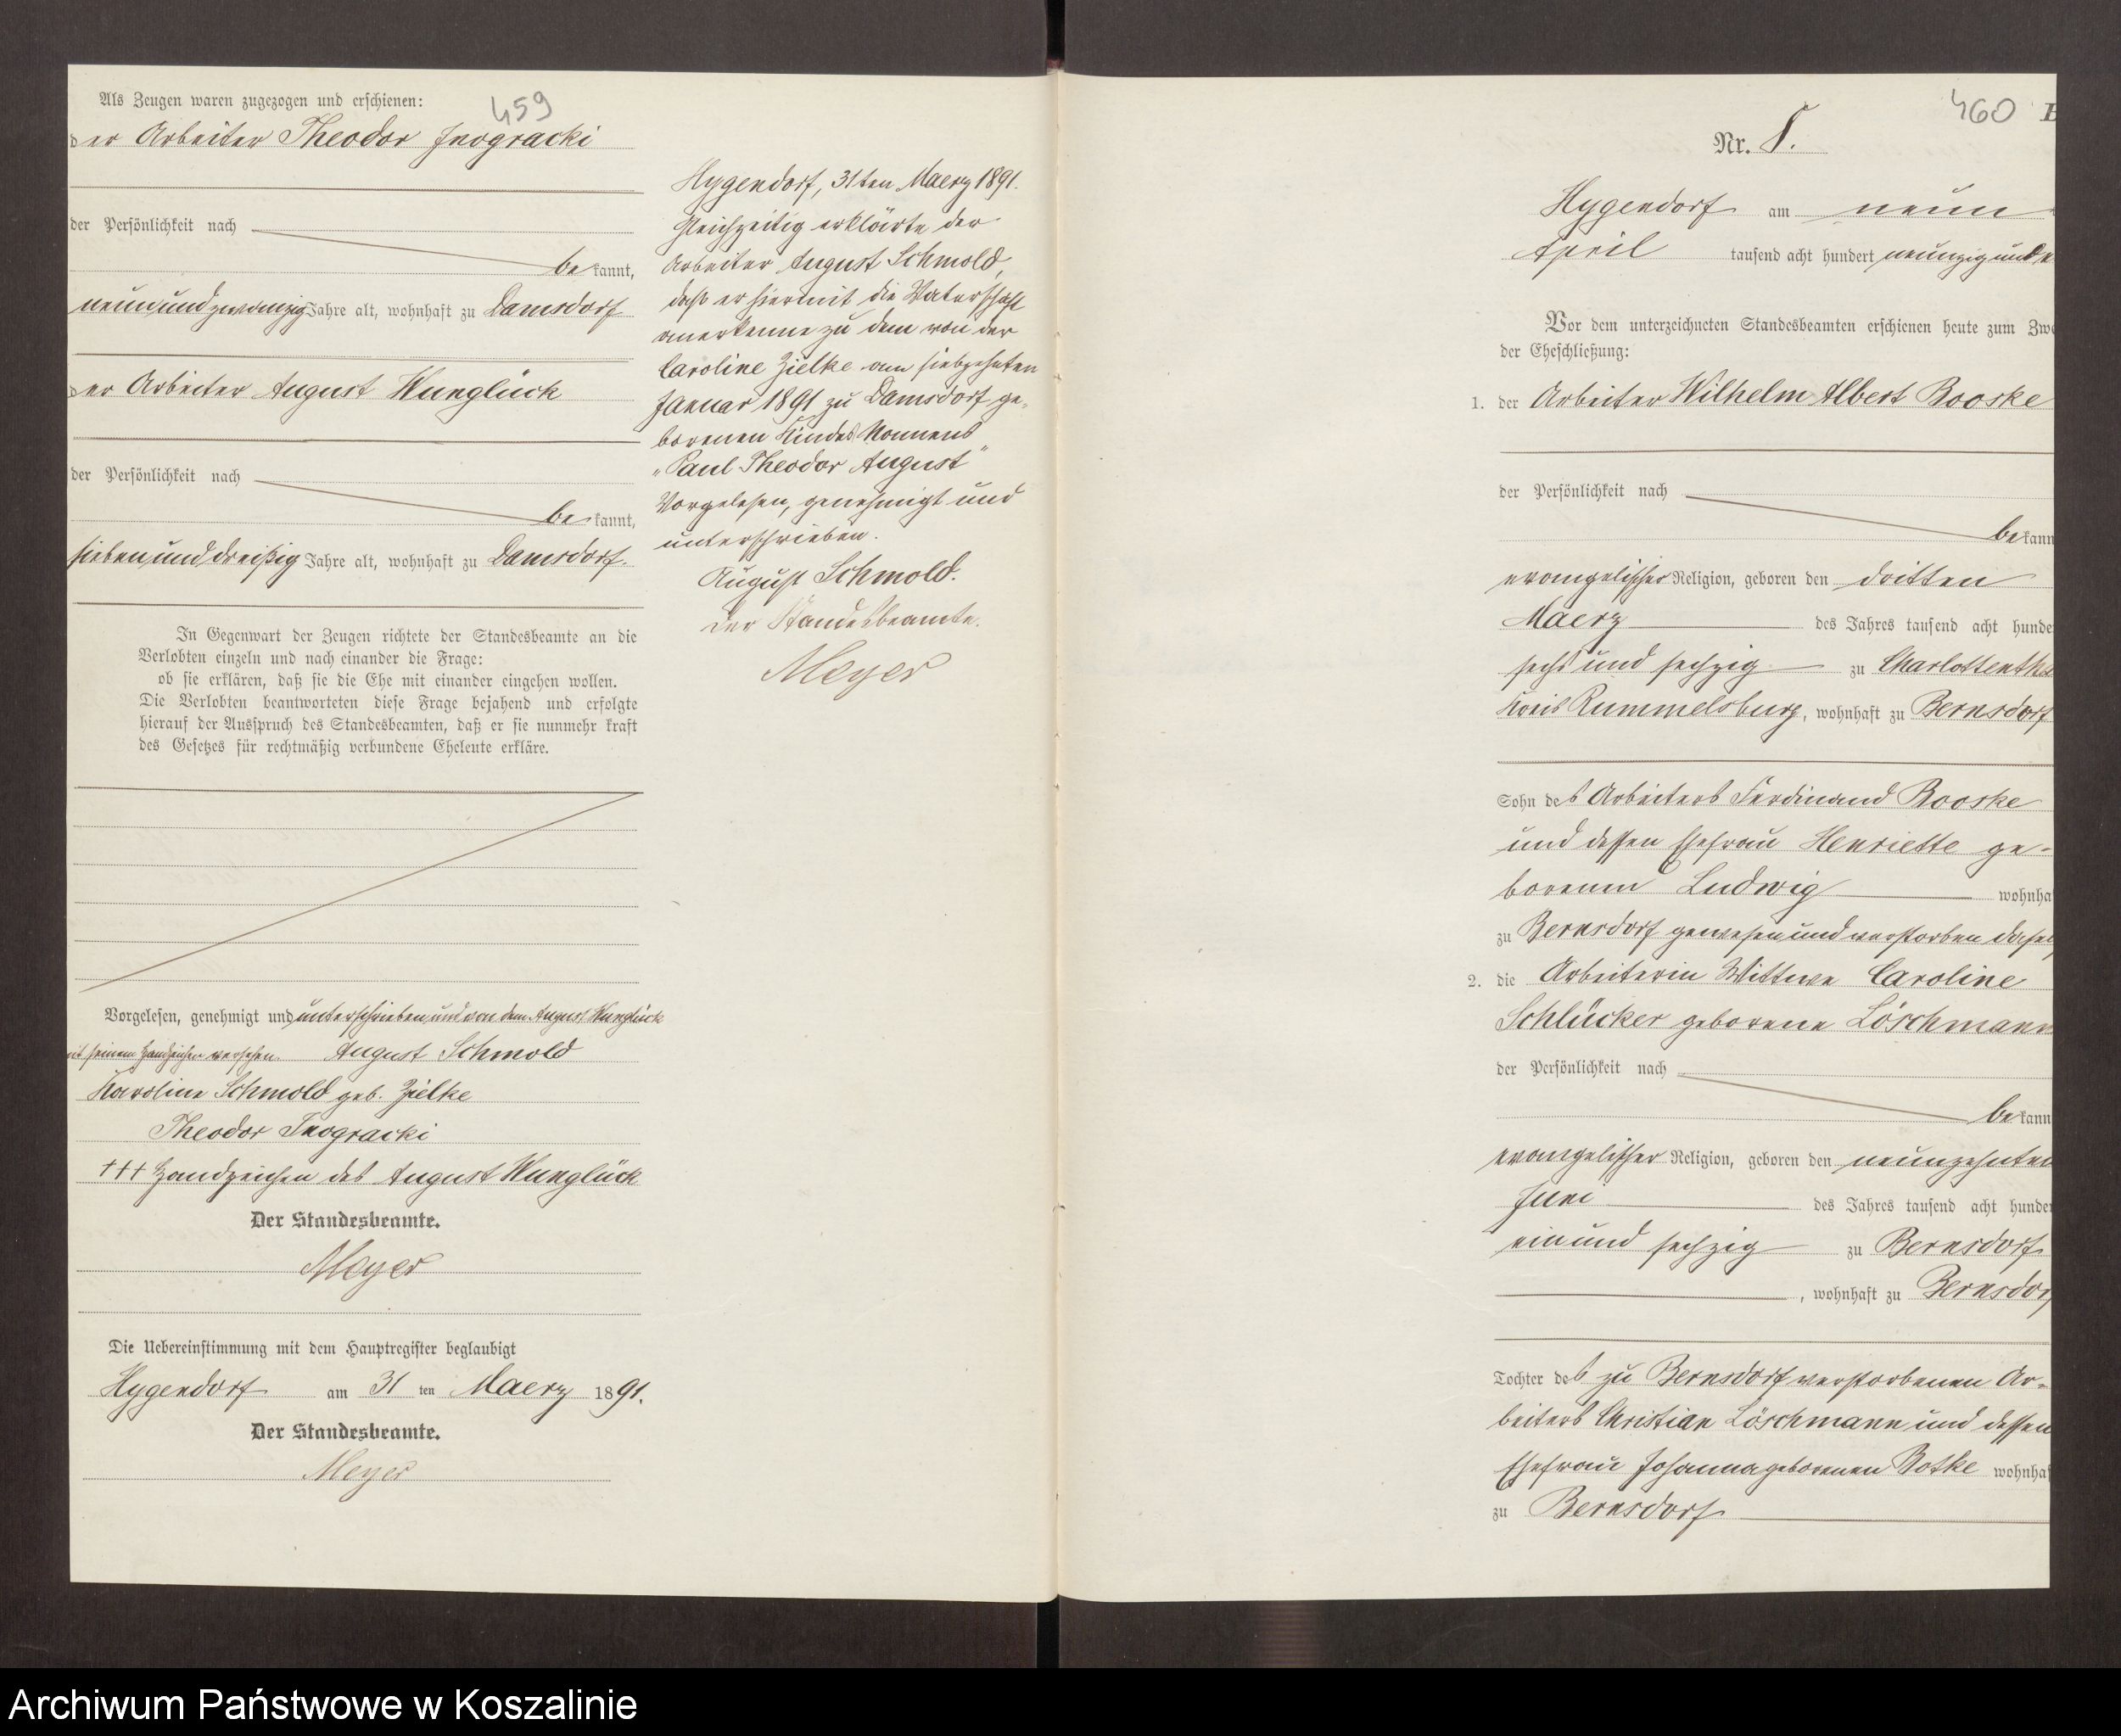 459
Als Zeugen waren zugezogen und erschienen:
der Arbeiter Theodor Inogracki
der Persönlichkeit nach
be kannt,
neunundzwanzig Jahre alt, wohnhaft zu Damsdorf
der Arbeiter August Wunglück
der Persönlichkeit nach
be kannt,
siebenunddreißig Jahre alt, wohnhaft zu Damsdorf.
In Gegenwart der Zeugen richtete der Standesbeamte an die
Verlobten einzeln und nach einander die Frage:
ob sie erklären, daß sie die Ehe mit einander eingehen wollen.
Die Verlobten beantworteten diese Frage bejahend und erfolgte
hierauf der Ausspruch des Standesbeamten, daß er sie nunmehr kraft
des Gesetzes für rechtmäßig verbundene Eheleute erkläre.
Vorgelesen, genehmigt und unterschrieben und von dem August Wunglück
mit seinem Handzeichen versehen. August Schmold
Karoline Schmold geb. Zielke
Theodor Inogracki
+++ Handzeichen des August Wunglück
Der Standesbeamte.
Meyer
Die Uebereinstimmung mit dem Hauptregister beglaubigt
Hygendorf am 31 ten Maerz 1891.
Der Standesbeamte.
Meyer
Hygendorf, 31ten Maerz 1891.
Gleichzeitig erklärte der
Arbeiter August Schmold,
daß er hiermit die Vaterschaft
anerkenne zu dem von der
Caroline Zielke am siebzehnten
Januar 1891 zu Damsdorf ge-
borenen Kindes Namens
„Paul Theodor August"
Vorgelesen, genehmigt und
unterschrieben.
August Schmold.
Der Standesbeamte.
Meyer
460 B
Nr. 5.
Hygendorf am neun
April tausend acht hundert neunzig und e
Vor dem unterzeichneten Standesbeamten erschienen heute zum Zwe
der Eheschließung:
1. der Arbeiter Wilhelm Albert Booske
der Persönlichkeit nach
be kann
evangelischer Religion, geboren den dritten
Maerz des Jahres tausend acht hunde
sechs und sechzig zu Charlottentha
Kreis Rummelsburg, wohnhaft zu Bernsdorf
Sohn des Arbeiters Ferdinand Booske
und dessen Ehefrau Henriette ge-
borenen Ludwig wohnha
zu Bernsdorf gewesen und verstorben dasel
2. die Arbeiterin Wittwe Caroline
Schlücker geborene Löschmann
der Persönlichkeit nach
be kann
evangelischer Religion, geboren den neunzehnten
Juni des Jahres tausend acht hunder
ein und sechzig zu Bernsdorf
, wohnhaft zu Bernsdor
Tochter des zu Bernsdorf verstorbenen Ar-
beiters Christian Löschmann und dessen
Ehefrau Johanna geborenen Notke wohnhaf
zu Bernsdorf
Archiwum Państwowe w Koszalinie